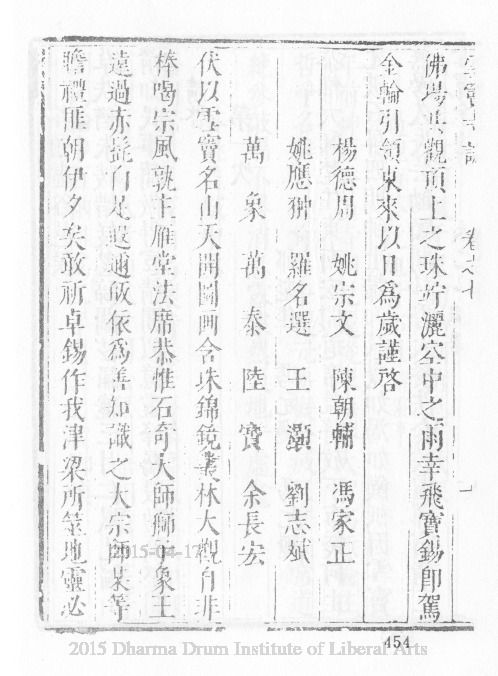 雪竇寺誌 卷之十
佛場共觀頂上之珠竚灑空中之雨幸飛寶錫即駕
金輪引領東來以日為歲謹啓
楊德周 姚宗文 陳朝輔 馮家正
姚應翀 羅名選 王灝 劉志斌
萬象 萬泰 陸寶 余長宏
伏以雪竇名山天開圖画含珠錦鏡叢林大觀自非
棒喝宗風孰主雁堂法席恭惟石奇大師獅 象王
遠過赤髭白足遐邇皈依為善知識之大宗師某等
瞻禮匪朝伊夕矣敢祈卓錫作我津梁所 地靈必
2015-04-17
454
2015 Dharma Drum Institute of Liberal Arts